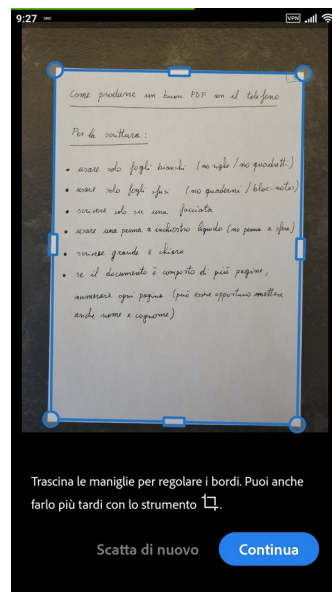 9:27
VPN
Come produrre un buon PDF con il telefono
Per la scrittura:
• usare solo fogli bianchi (no righe / no quadretti)
• usare solo fogli sfusi (no quaderni / bloc-notes)
• scrivere solo su una facciata
• usare una penna a inchiostro liquido (no penna a sfera)
• scrivere grande e chiaro
• se il documento è composto di più pagine,
numerare ogni pagina (può essere opportuno mettere
anche nome e cognome)
Trascina le maniglie per regolare i bordi. Puoi anche
farlo più tardi con lo strumento .
Scatta di nuovo
Continua